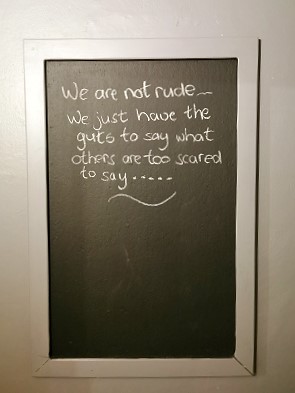 We are not rude~
We just have the
guts to say what
others are too scared
to say.....